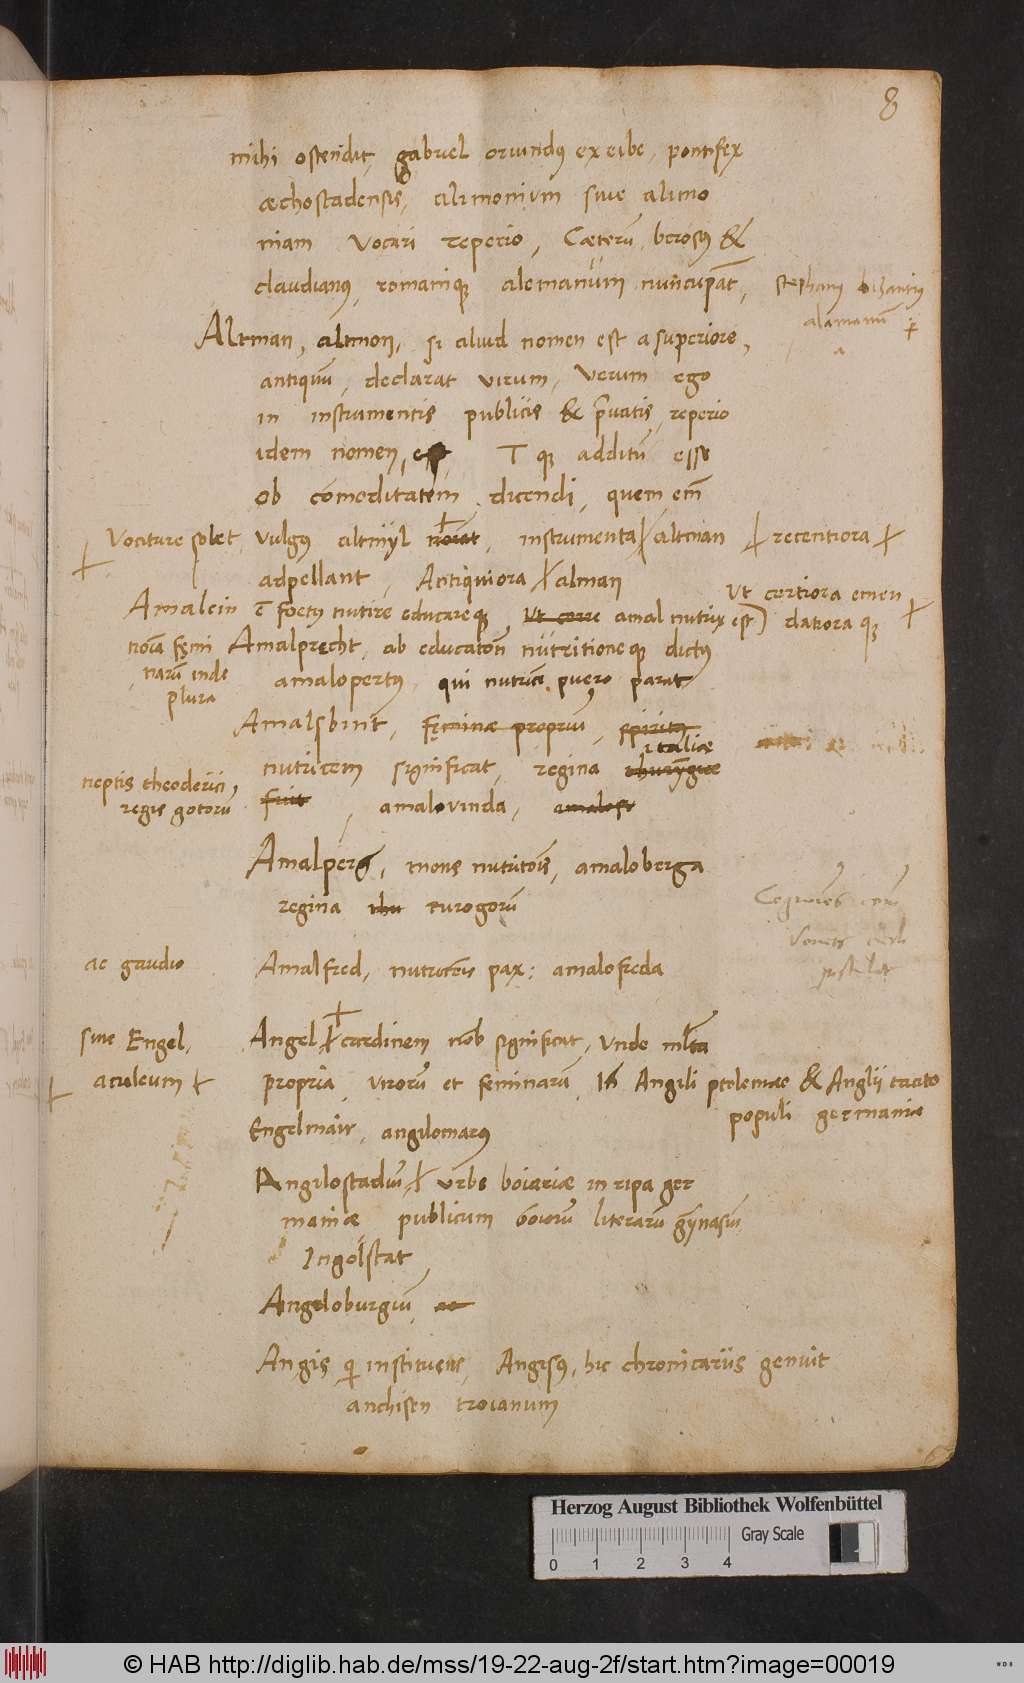 8
mihi ostendit, gabriel oriundus ex eibe, pontifex
æchostadensis, alimonium sive alimo
niam vocari reperio, Cæterū berosus &
claudianus, romanique alemanum nuncupāt,
stephanus bizantius
alamanū
Altman, altmon, si aliud nomen est a superiore,
antiquū, declarat virum, verum ego
in instrumentis publicis & privatis, reperio
idem nomen, est, T que additū esse
ob comoditatem dicendi, quem em̄
vociture solet, vulgus altmyl noiat, instrumenta altman recentiora
adpellant, Antiquiora alman
Amalein ē foetus nutire educareque, ut corre amal nutrix est ut certiora emen
datiora que
noīa femi
narū inde
plura
Amalprecht, ab educatōn nutritioneque dictus
amalopertus, qui nutrici puero parat
Amalsbint, feminæ propriū, spiritus
nutritem significat, regina thuringiæ italiæ
neptis theoderici
regis gotorū
fuit, amalovinda, amalosv
Amalperg, mons nutritōis, amaloberga
regina thu turogorū
ac gaudio
Amalfred, nutricōis pax: amalofreda
sive Engel,
aculeum
Angel cardinem nob significat, unde mlta
propria, virorū et feminarū, Angili ptolemæo & Anglii tacito
populi germaniæ
Engelmair, angilomarus
Angilostadiū, urbs boiariæ in ripa ger
maniæ publicum boiorū literarū gymnasiū
Ingolstat
Angeloburgiū ac
Angis qi instituens, Angisus, hic chronicariis genuit
anchisen troianum
Herzog August Bibliothek Wolfenbüttel
Gray Scale
0 1 2 3 4
© HAB http://diglib.hab.de/mss/19-22-aug-2f/start.htm?image=00019